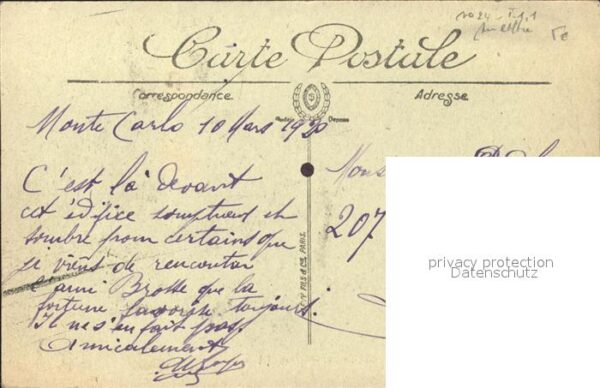 Carte Postale
Correspondance
Adresse
Monte Carlo 10 Mars 1920
C'est là devant
cet édifice somptueux et
sombre pour certains que
je viens de rencontrer
l'ami Brosse que la
fortune favorise toujours.
Il ne s'en fait pas.
Amicalement
207
FILS & Cie PARIS
privacy protection
Datenschutz